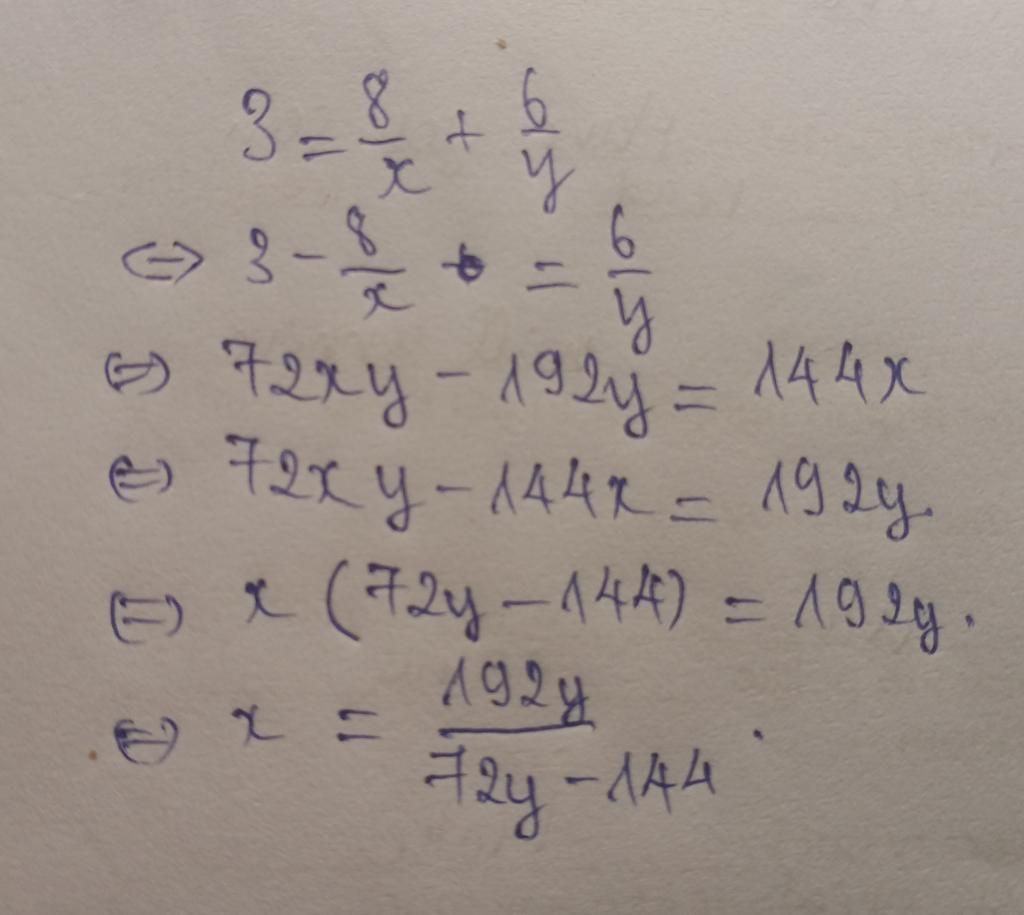 3 = 8/x + 6/y
⇔ 3 - 8/x = 6/y
⇔ 72xy - 192y = 144x
⇔ 72xy - 144x = 192y.
⇔ x (72y - 144) = 192y.
⇔ x = 192y/(72y - 144).